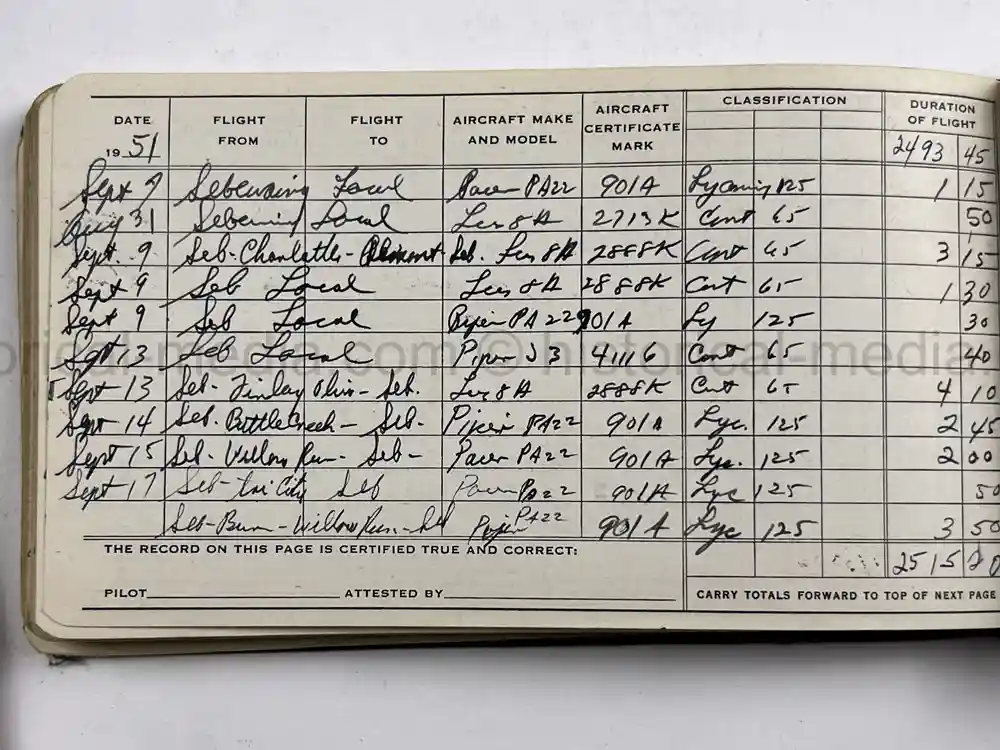 DATE FLIGHT FROM FLIGHT TO AIRCRAFT MAKE AND MODEL AIRCRAFT CERTIFICATE MARK CLASSIFICATION DURATION OF FLIGHT
19 51 2493 45
Sept 7 Sebewaing Local Pacer PA22 901A Lycoming 125 1 15
Aug 31 Sebewaing Local Lus 8A 2713K Cont 65 50
Sept. 9 Seb-Charlotte- Seb. Lus 8A 2888K Cont 65 3 15
Sept 9 Seb Local Lus 8A 2888K Cont 65 1 30
Sept 9 Seb Local Piper PA 22 901A Ly 125 30
Sept 13 Seb Local Piper J3 41116 Cont 65 40
Sept 13 Seb- Finlay Ohio- Seb. Lus 8A 2888K Cont 65 4 10
Sept 14 Seb. BattleCreek- Seb- Piper PA22 901A Lyc. 125 2 45
Sept 15 Seb- Willow Run- Seb- Pacer PA22 901A Lyc. 125 2 00
Sept 17 Seb-Tri City Seb Pacer PA22 901A Lyc 125 50
Seb- -Willow Run- Piper PA22 901A Lyc 125 3 50
2515 20
THE RECORD ON THIS PAGE IS CERTIFIED TRUE AND CORRECT:
PILOT ATTESTED BY CARRY TOTALS FORWARD TO TOP OF NEXT PAGE
© historical-media